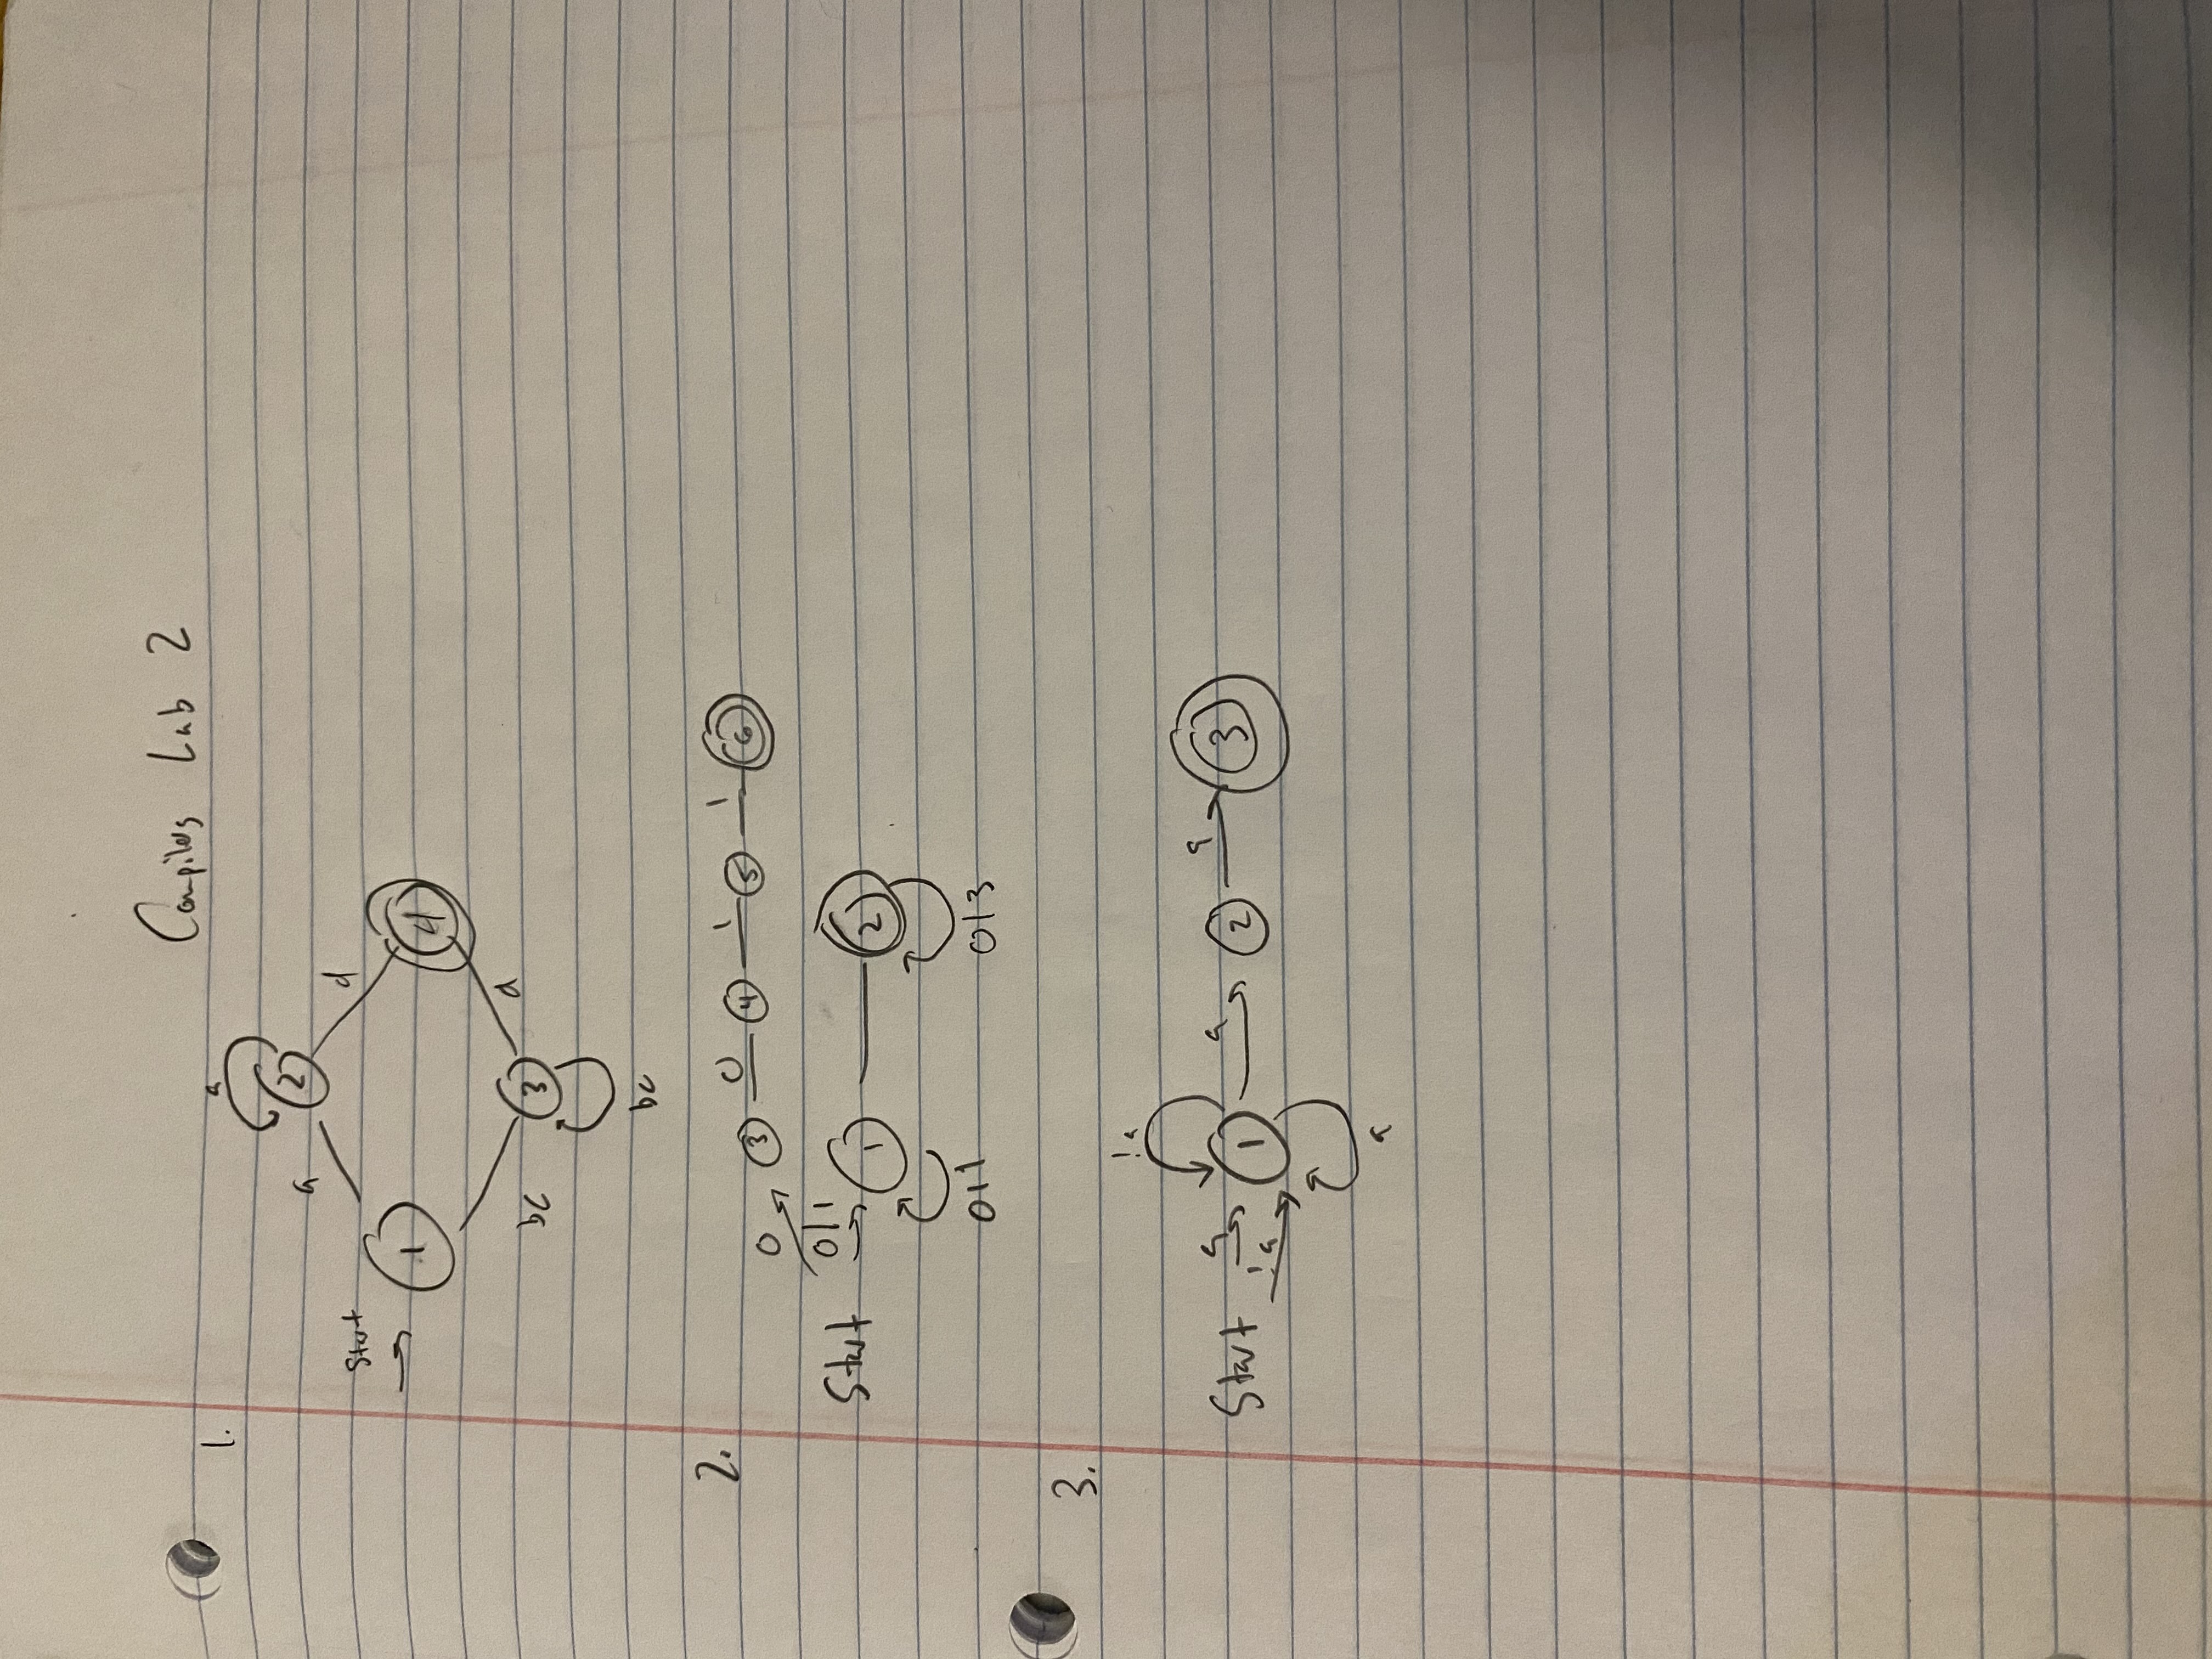 Compilers Lab 2
1.
a
2
a
d
Start
1
4
bc
3
d
bc
2.
0
3
0
4
1
5
1
6
Start
0|1
1
2
0|1
0|3
3.
!a
Start
a
!a
1
a
2
a
3
a